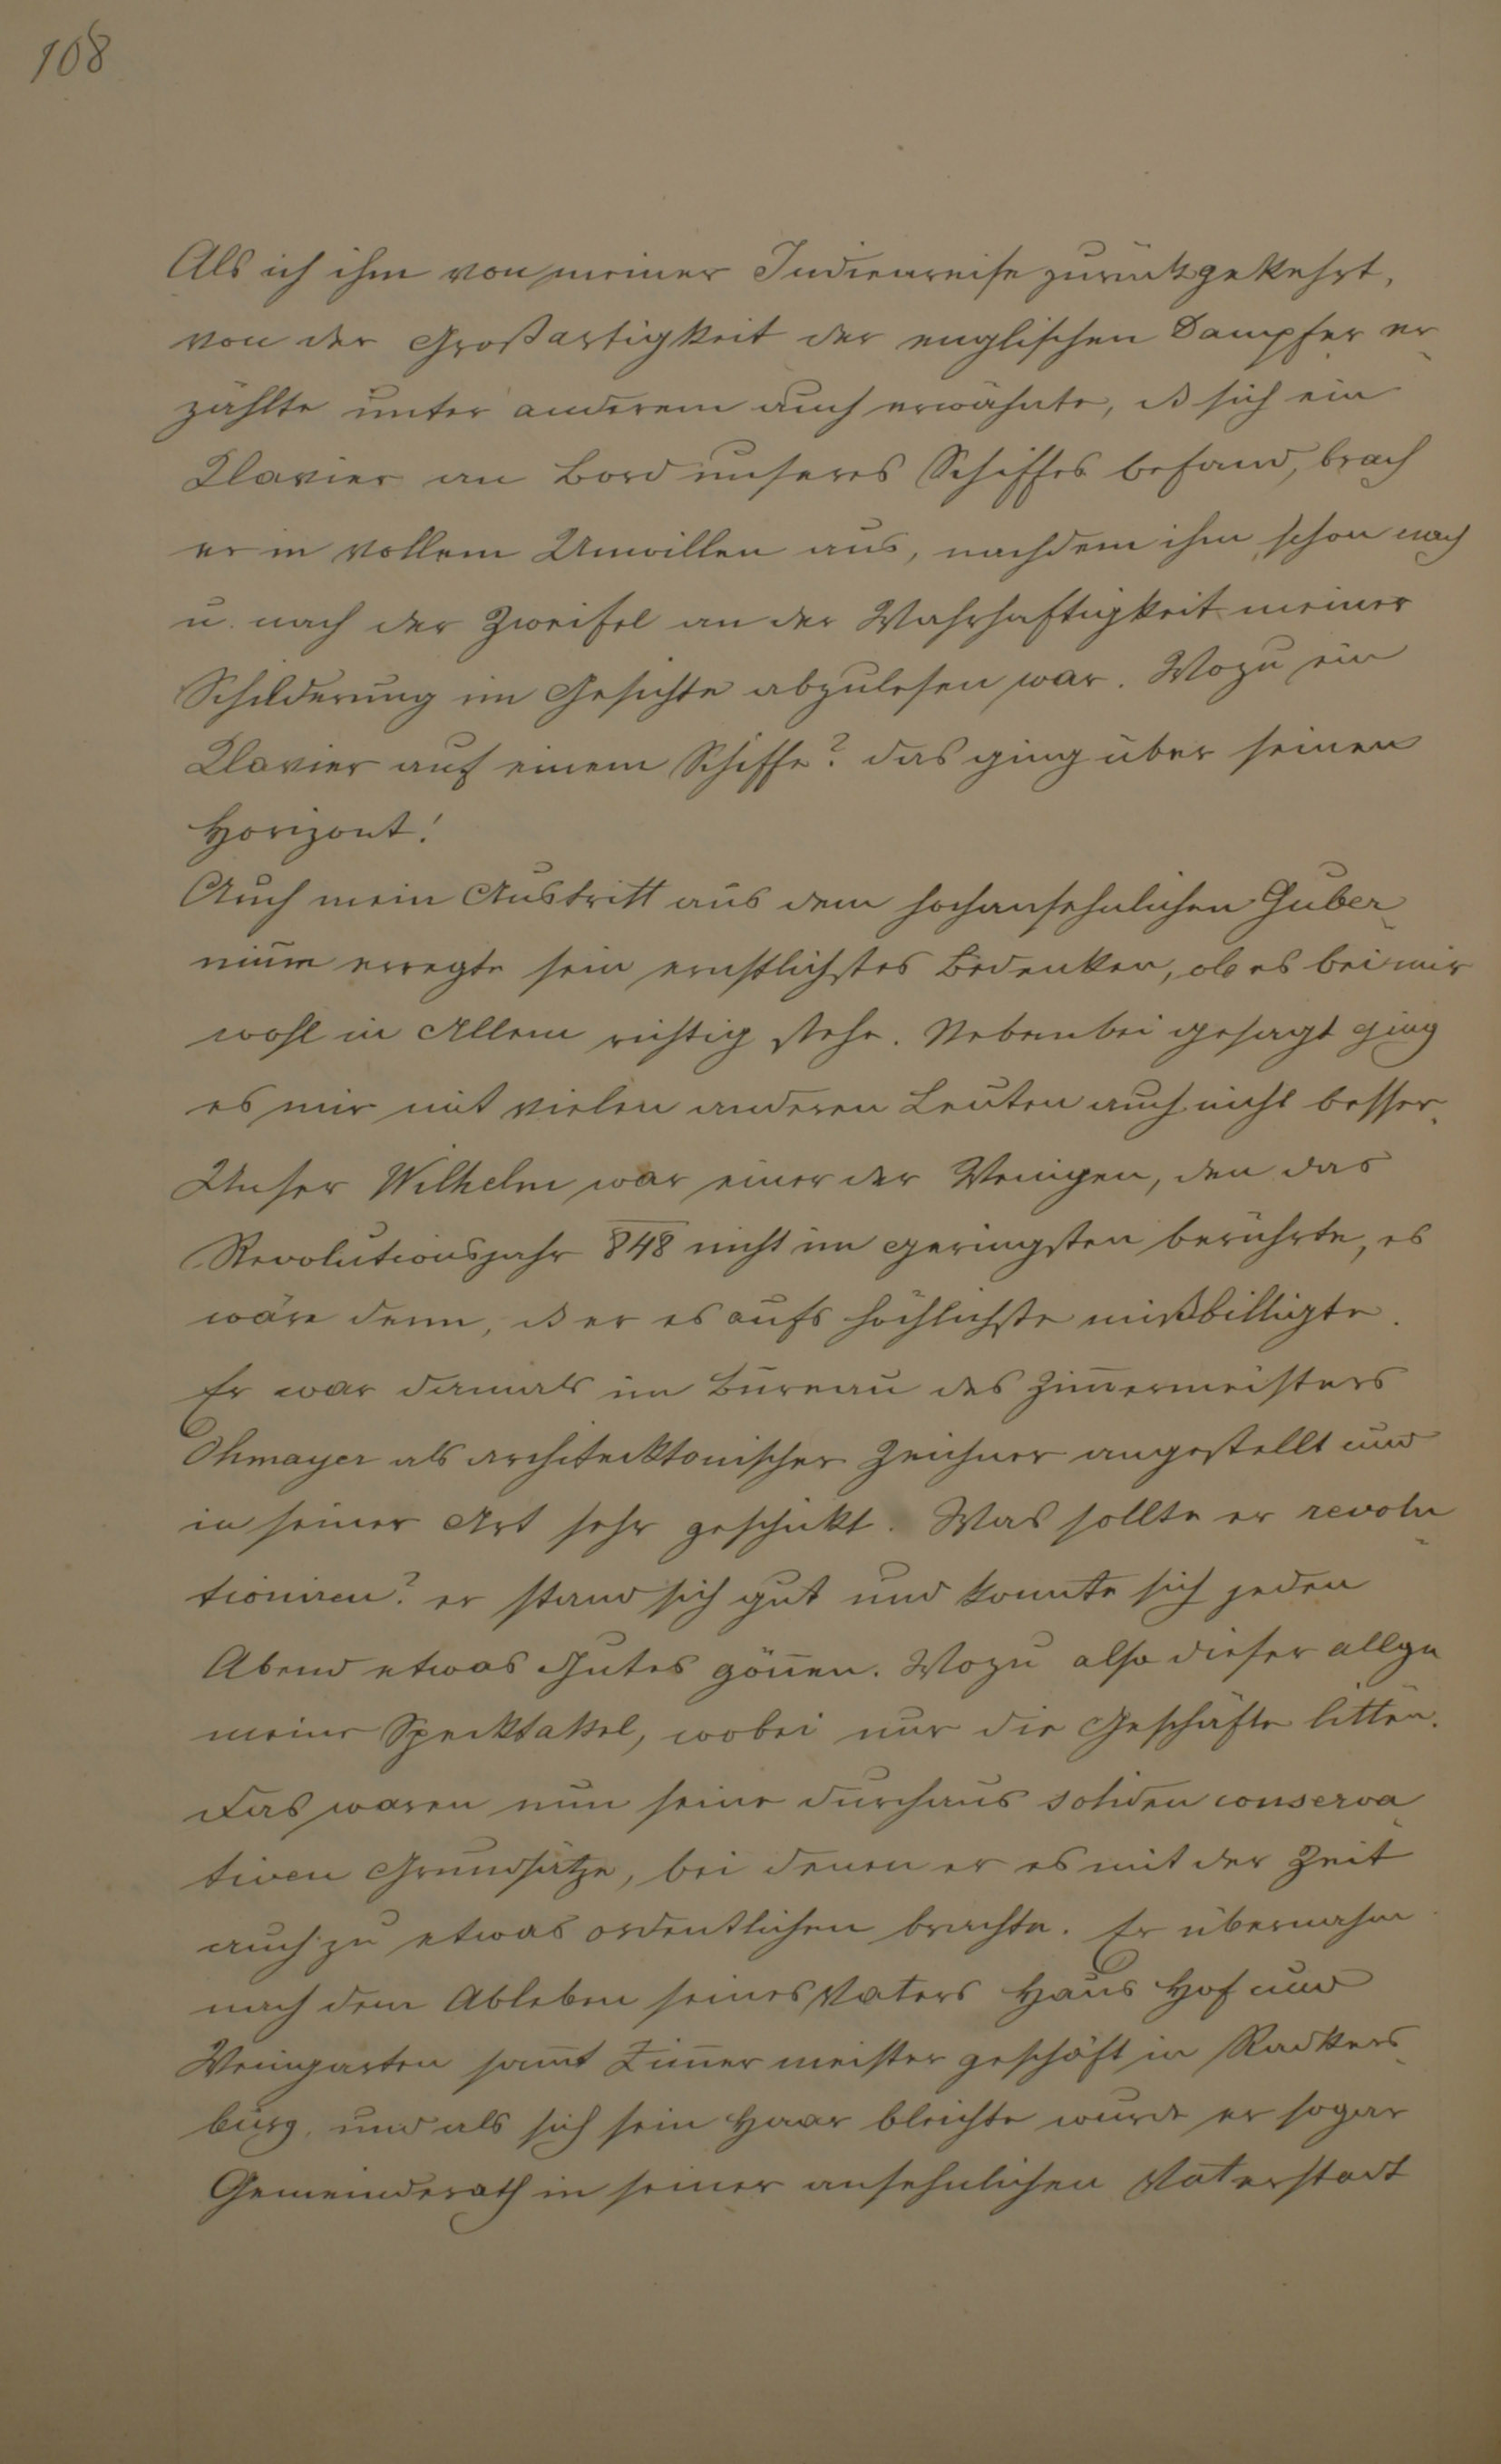 108
Als ich ihm von meiner Indienreise zurückgekehrt,
von der Großartigkeit der englischen Dampfer er
zählte unter anderem auch erwähnte, dß sich ein
Klavier an Bord unseres Schiffes befand, brach
er in vollem Unwillen aus, nachdem ihm schon nach
u. nach der Zweifel an der Wahrhaftigkeit meiner
Schilderung im Gesichte abzulesen war. Wozu ein
Klavier auf einem Schiffe? das ging über seinen
Horizont!
Auch mein Austritt aus dem hochansehnlichen Guber
nium erregte sein ernstlichstes Bedenken, ob es bei mir
wohl in Allem richtig stehe. Nebenbei gesagt ging
es mir mit vielen anderen Leuten auch nicht besser.
Unser Wilhelm war einer der Wenigen, den das
Revolutionsjahr 848 nicht im geringsten berührte, es
wäre denn, dß er es aufs höchlichste mißbilligte.
Er war damals im Bureau des Zim̄ermeisters
Ohmayer als architecktonischer Zeichner angestellt und
in seiner Art sehr geschickt. Was sollte er revolu
tioniren? er stand sich gut und konnte sich jeden
Abend etwas Gutes gön̄en. Wozu also dieser allge
meine Specktakel, wobei nur die Geschäfte litten.
Das waren nun seine durchaus soliden conserva
tiven Grundsätze, bei denen er es mit der Zeit
auch zu etwas ordentlichen brachte. Er übernahm
nach dem Ableben seines Vaters Haus Hof und
Weingarten sam̄t Zim̄er meister geschäft in Radkers
burg, und als sich sein Haar bleichte wurde er sogar
Gemeinderath in seiner ansehnlichen Vaterstadt